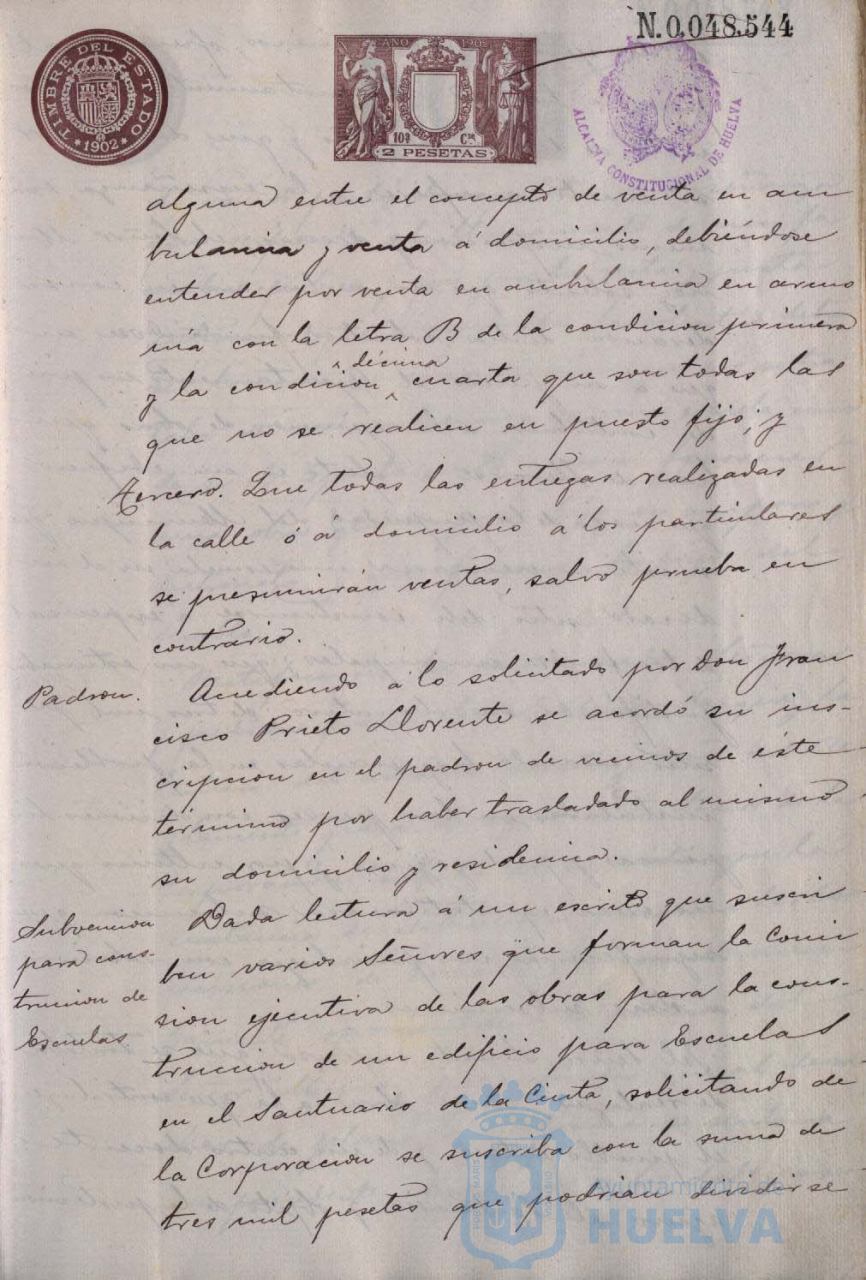 N.0,048,544
TIMBRE DEL ESTADO
*1902*
AÑO 1902
10ª Cˢᵉ
2 PESETAS
ALCALDIA CONSTITUCIONAL DE HUELVA
alguna entre el concepto de venta en am
bulancia y venta á domicilio, debiéndose
entender por venta en ambulancia en armo
nía con la letra B de la condicion primera
y la condicion décima cuarta que son todas las
que no se realicen en puesto fijo; y
Tercero. Que todas las entregas realizadas en
la calle ó á domicilio á los particulares
se presumirán ventas, salvo prueba en
contrario.
Padron. Accediendo á lo solicitado por Don Fran
cisco Prieto Llorente se acordó su ins-
cripcion en el padron de vecinos de éste
término por haber trasladado al mismo
su domicilio y residencia.
Subvencion
para cons-
truccion de
Escuelas.
Dada lectura á un escrito que suscri
ben varios Señores que forman la Comi
sion ejecutiva de las obras para la cons-
truccion de un edificio para Escuelas
en el Santuario de la Cinta, solicitando de
la Corporacion se suscriba con la suma de
tres mil pesetas que podrian dividirse
Ayuntamiento de
HUELVA